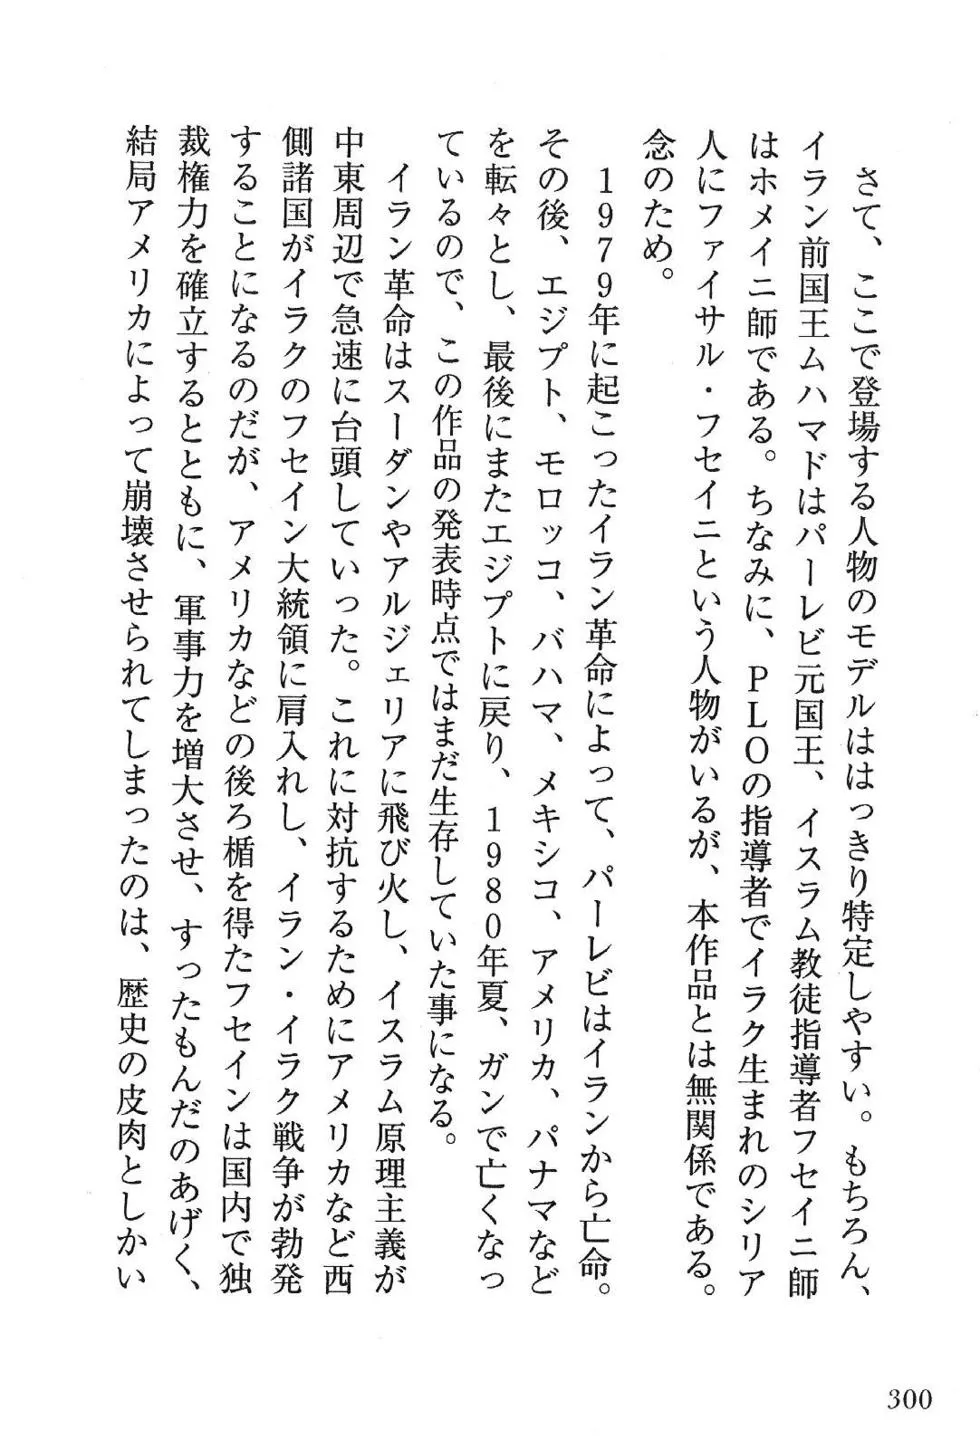 さて、ここで登場する人物のモデルははっきり特定しやすい。もちろん、
イラン前国王ムハマドはパーレビ元国王、イスラム教徒指導者フセイニ師
はホメイニ師である。ちなみに、PLOの指導者でイラク生まれのシリア
人にファイサル・フセイニという人物がいるが、本作品とは無関係である。
念のため。
1979年に起こったイラン革命によって、パーレビはイランから亡命。
その後、エジプト、モロッコ、バハマ、メキシコ、アメリカ、パナマなど
を転々とし、最後にまたエジプトに戻り、1980年夏、ガンで亡くなっ
ているので、この作品の発表時点ではまだ生存していた事になる。
イラン革命はスーダンやアルジェリアに飛び火し、イスラム原理主義が
中東周辺で急速に台頭していった。これに対抗するためにアメリカなど西
側諸国がイラクのフセイン大統領に肩入れし、イラン・イラク戦争が勃発
することになるのだが、アメリカなどの後ろ楯を得たフセインは国内で独
裁権力を確立するとともに、軍事力を増大させ、すったもんだのあげく、
結局アメリカによって崩壊させられてしまったのは、歴史の皮肉としかい
300